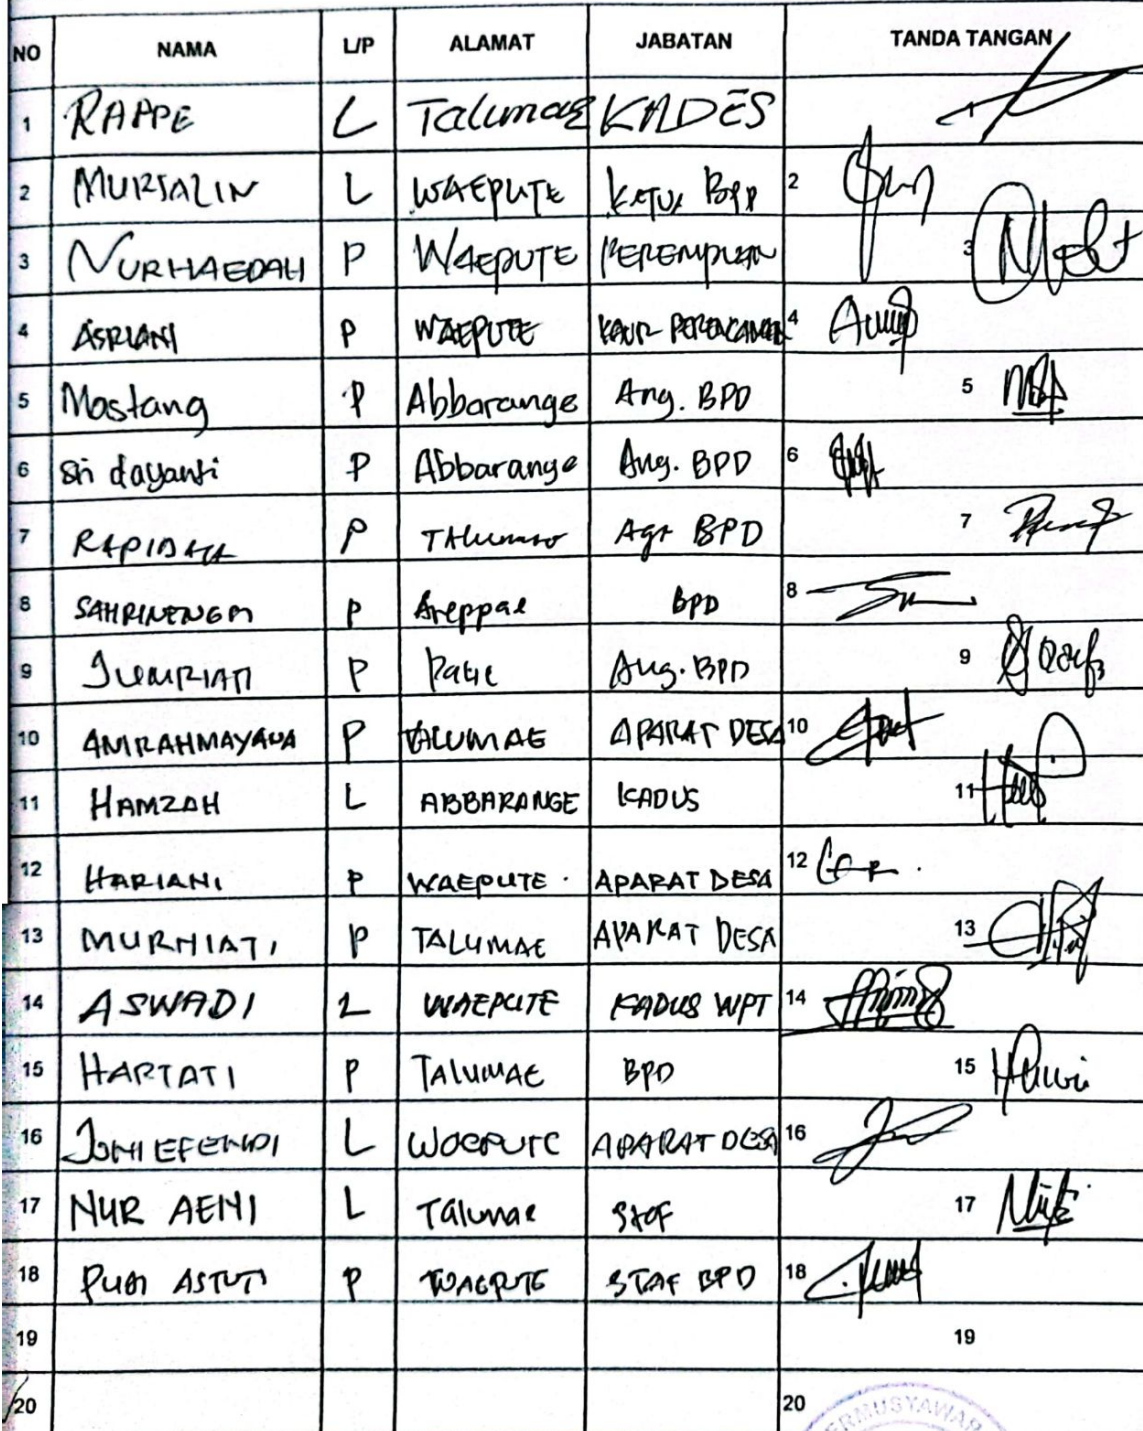 NO NAMA L/P ALAMAT JABATAN TANDA TANGAN
1 RAPPE L Talumae KADES 1
2 MURSALIN L WAEPUTE KETUA BPD 2
3 NURHAEDAH P WAEPUTE PEREMPUAN 3
4 ASRIANI P WAEPUTE KAUR PERENCANAAN 4
5 Mastang P Abbarange Ang. BPD 5
6 Sri dayanti P Abbarange Ang. BPD 6
7 RAPIDAH P TALumae Agt BPD 7
8 P Areppae BPD 8
9 JUMRIATI P Ang. BPD 9
10 ANIRAHMAYANA P TALUMAE APARAT DESA 10
11 HAMZAH L ABBARANGE KADUS 11
12 HARIANI P WAEPUTE . APARAT DESA 12
13 MURNIATI P TALUMAE APARAT DESA 13
14 ASWADI L WAEPUTE KADUS WPT 14
15 HARTATI P TALUMAE BPD 15
16 JONI EFENDI L WAEPUTE APARAT DESA 16
17 NUR AENI L Talumae Staf 17
18 PUJI ASTUTI P WAEPUTE STAF BPD 18
19 19
20 20
ERMUSYAWAR